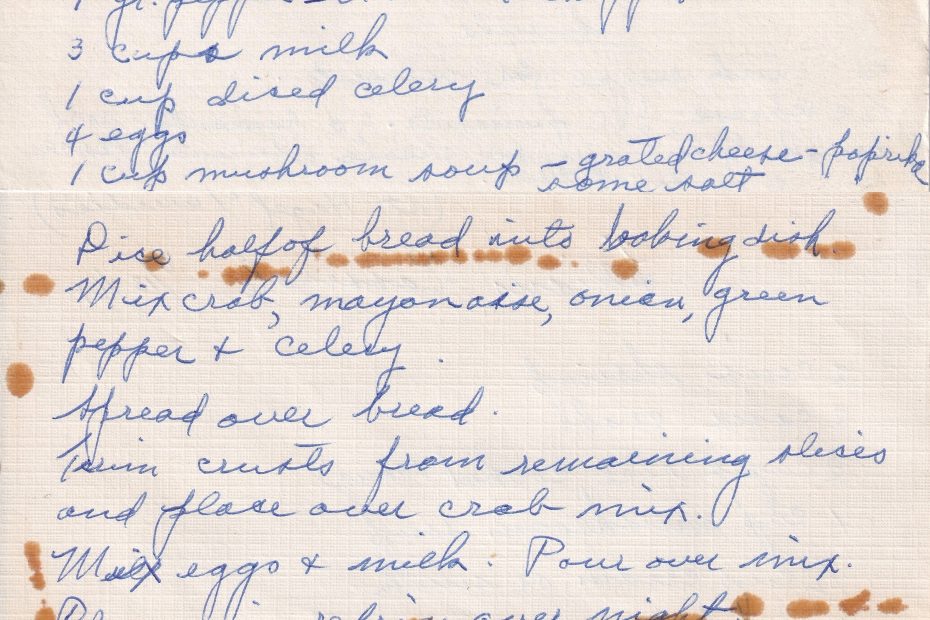 1 gr. pepper -
3 cups milk
1 cup diced celery
4 eggs
1 cup mushroom soup - grated cheese - paprika
some salt
Dice half of bread into baking dish.
Mix crab, mayonaise, onion, green
pepper + celery.
Spread over bread.
Trim crusts from remaining slices
and place over crab mix.
Mix eggs + milk. Pour over mix.
over night.